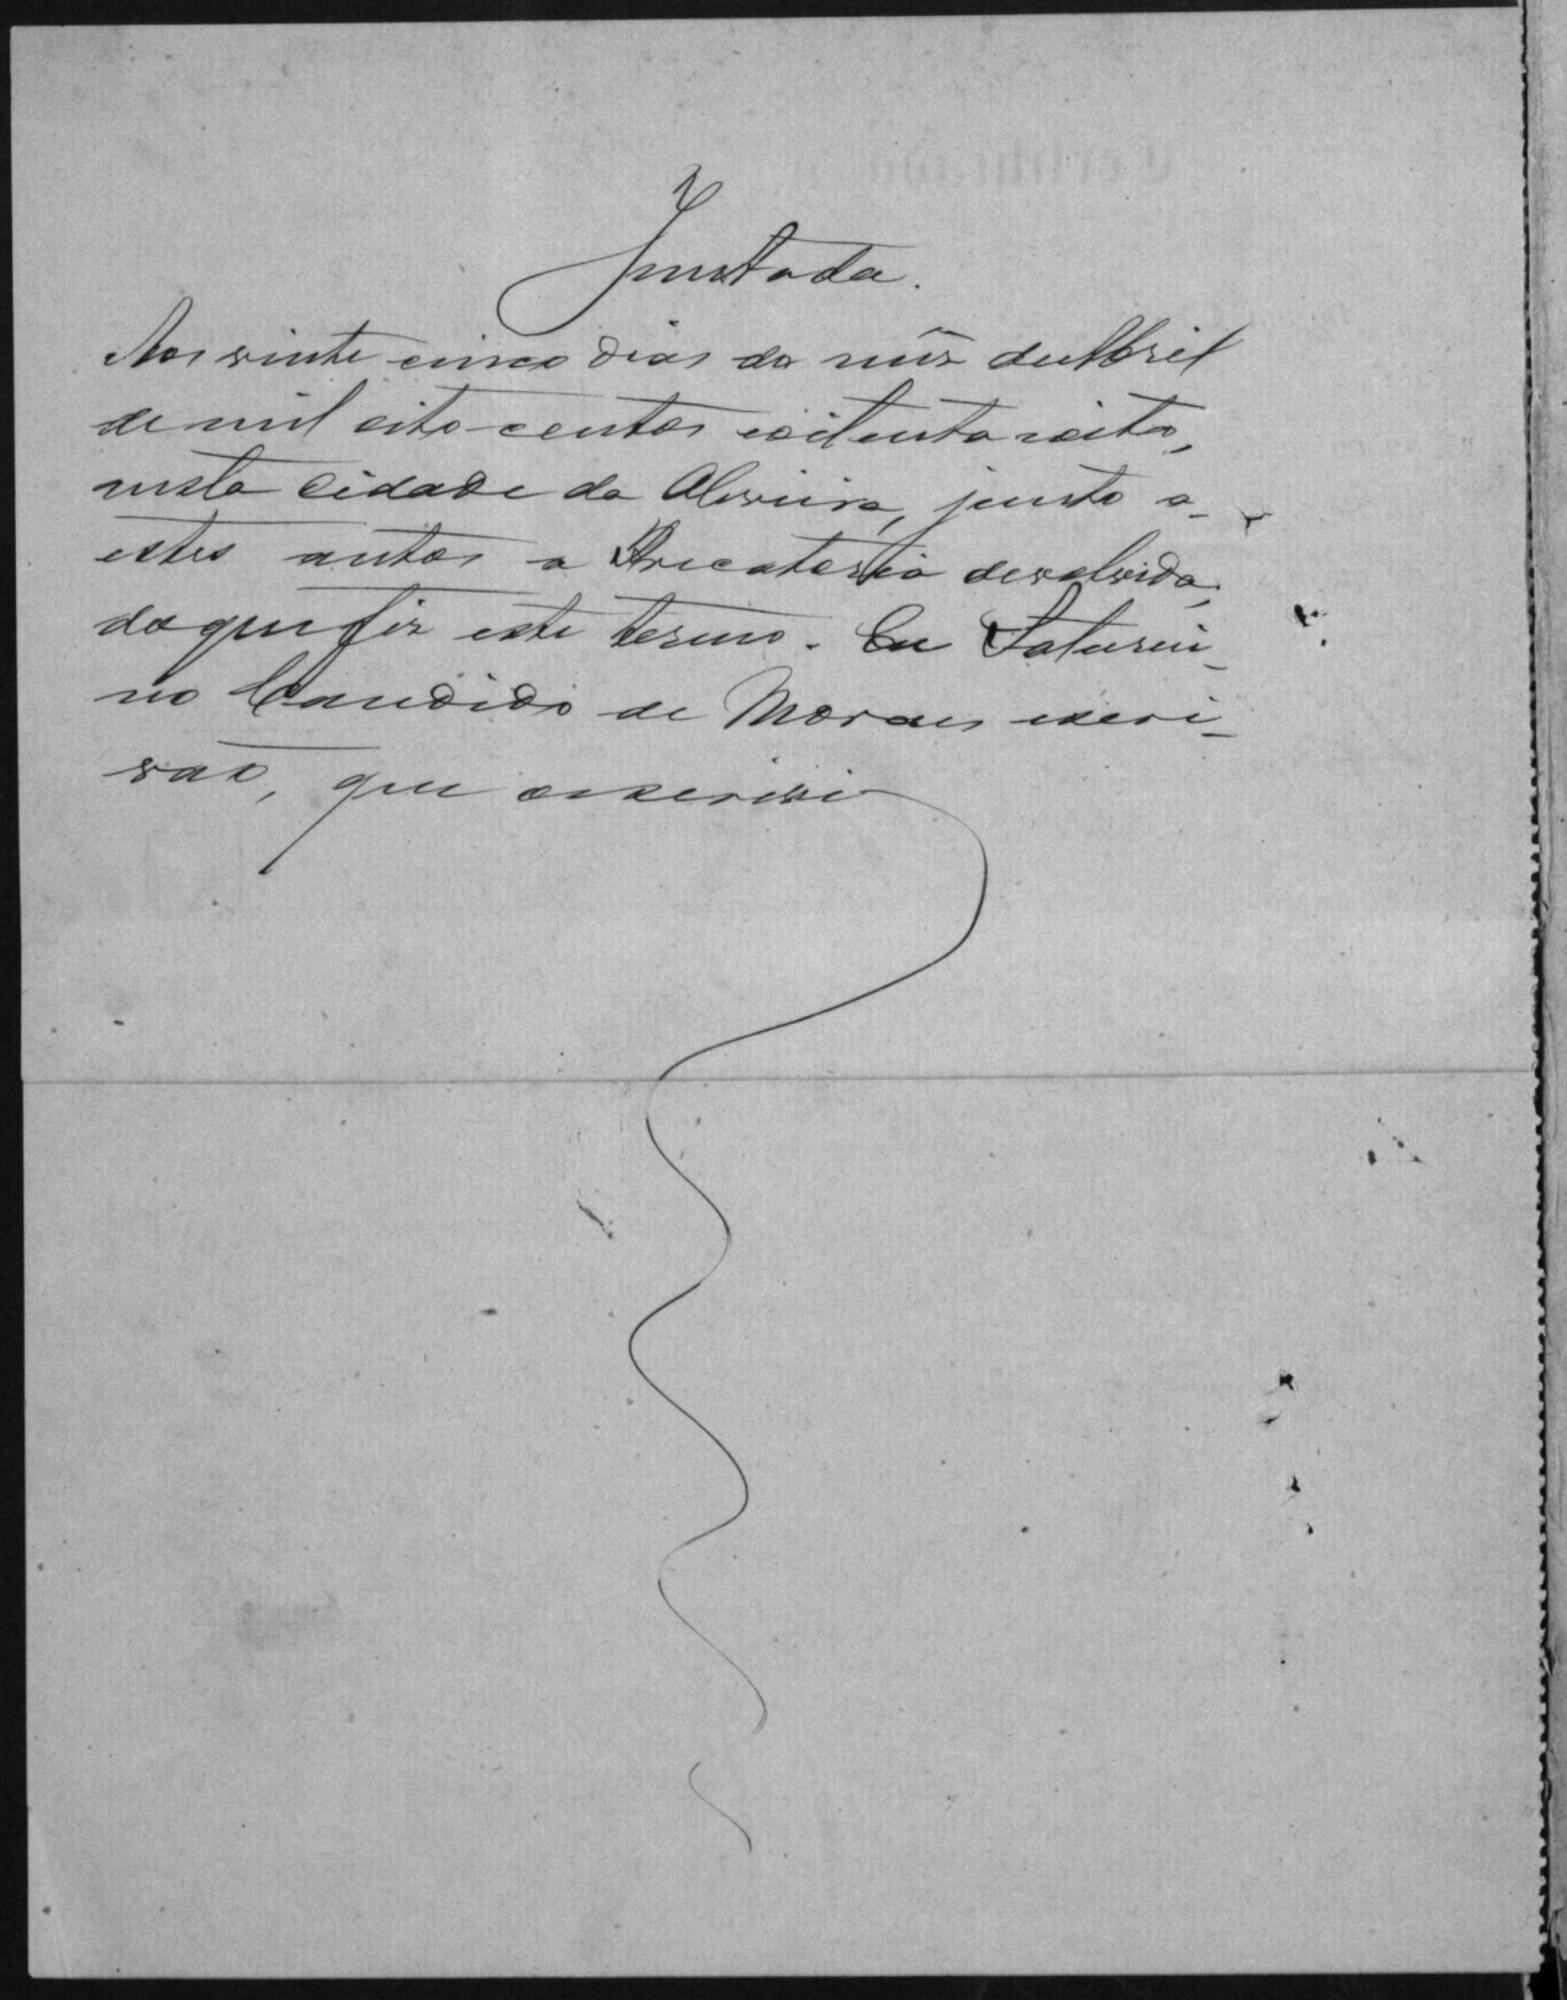 Juntada.
Aos vinte cinco dias do mês de Abril
de mil oito centos e oitenta e oito,
nesta Cidade da Oliveira, junto a
estes autos a Precatoria devolvida;
do que fiz este termo. Eu Saturni-
no Candido de Moraes escri-
vão, que o escrevi